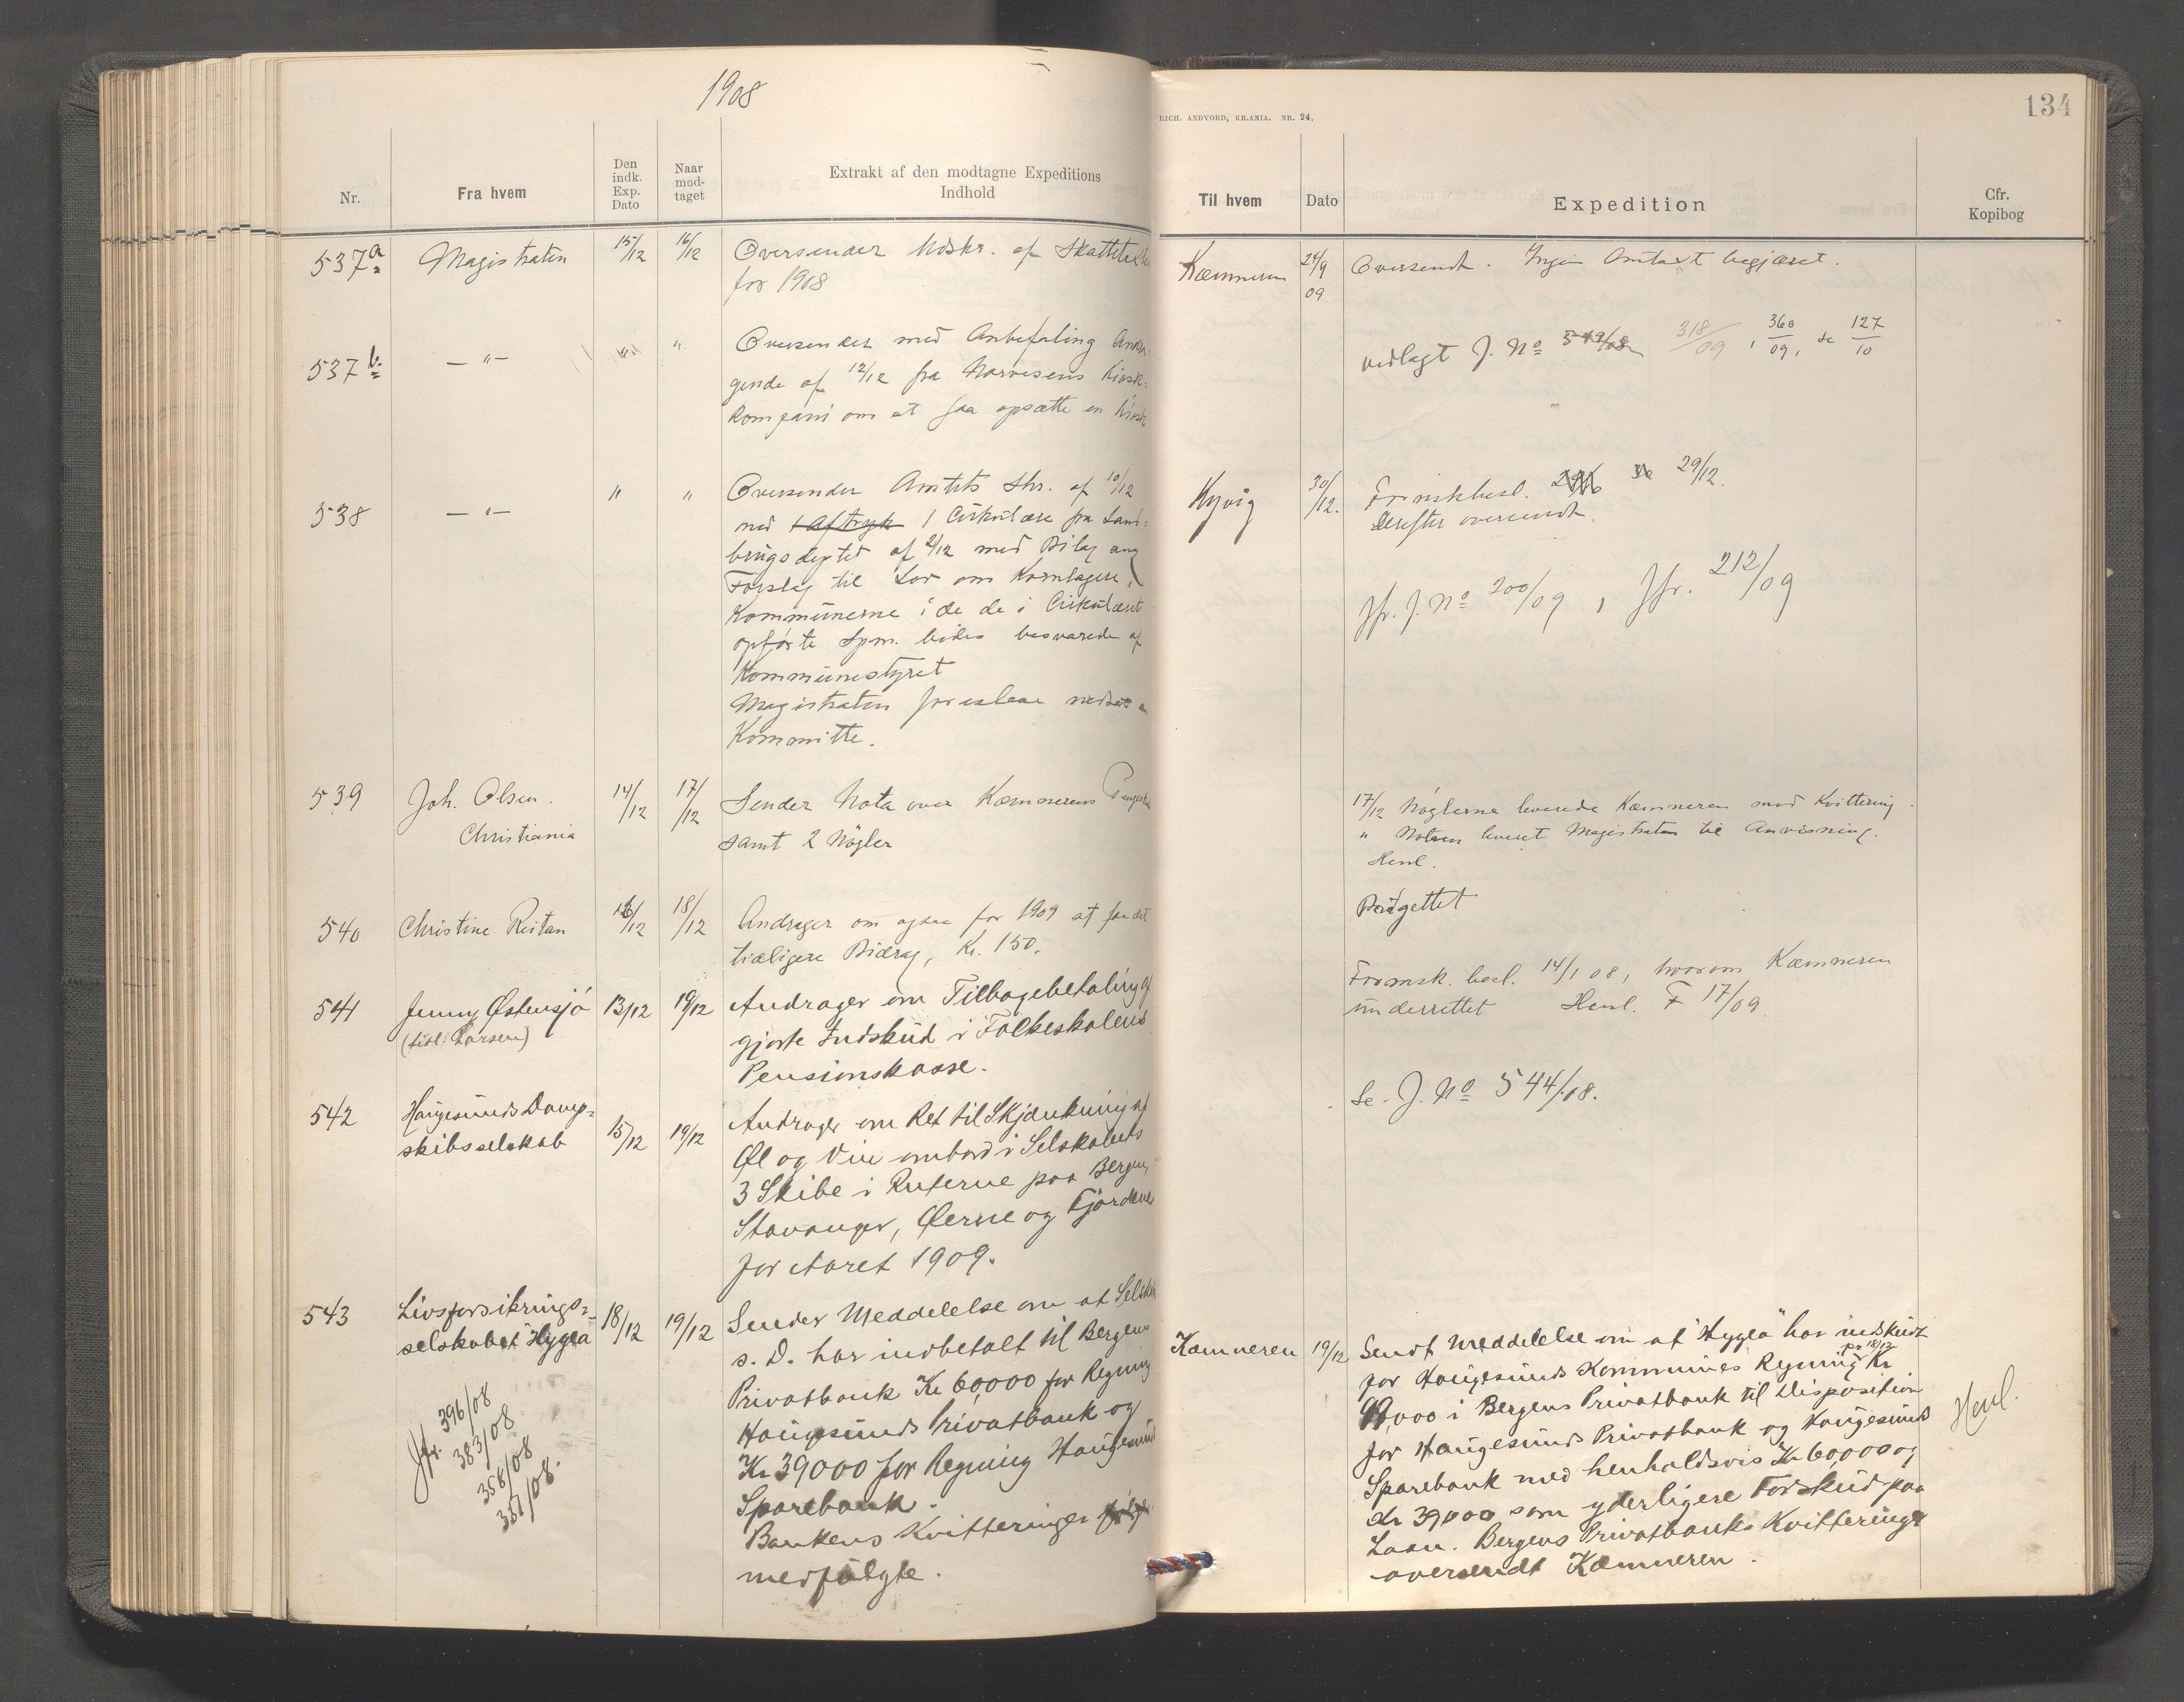 1908
Nr.
Fra hvem
Den
indk.
Exp.
Dato
Naar
mod-
taget
Extrakt af den modtagne Expeditions
Indhold
537a
Magistraten
15/12
16/12
Oversender Udskr. af
for 1908
537b
— " —
"
"
Oversender med Anbefaling Andra-
gende af 12/12 fra Narvesens Kiosk-
kompani om at faa opsætte en Kiosk
538
— " —
"
"
Oversender Amtets Skr. af 10/12
med 1 Aftryk 1 Cirkulære fra Land-
brugsdeptet af 2/12 med Bilag ang
Forslag til Lov om Kornlagere,
Kommunerne i de de i Cirkulæret
opførte Spm. bedes besvarede af
Kommunestyret
Magistraten foreslaar nedsat en
Kommitte.
539
Joh. Olsen.
Christiania
14/12
17/12
Sender Nota over Kæmnerens
samt 2 Nøgler
540
Christine Reitan
16/12
18/12
Andrager om ogsaa for 1909 at faa det
tidligere Bidrag, Kr. 150.
541
Jenny Østensjø
(tidl. Larsen)
13/12
19/12
Andrager om Tilbagebetaling af
gjorte Indskud i Folkeskolens
Pensionskasse.
542
Haugesunds Damp-
skibsselskab
15/12
19/12
Andrager om Ret til Skjænkning af
Øl og Vin ombord i Selskabets
3 Skibe i Ruterne paa Bergen,
Stavanger, Øerne og Fjordene
for Aaret 1909.
543
Livsforsikrings-
selskabet "Hygea
18/12
19/12
Sender Meddelelse om at Selsk
s. D. har indbetalt til Bergens
Privatbank Kr 60,000 for Regning
Haugesunds Privatbank og
Kr 39000 for Regning Haugesunds
Sparebank.
Bankens Kvitteringer følger
medfulgte.
Jfr. 396/08
383/08
358/08
351/08.
RICH. ANDVORD, KR.ANIA. NR. 24.
134
Til hvem
Dato
Expedition
Cfr.
Kopibog
Kæmneren
24/9
09
Oversendt. Ingen Omtaxt begjæret.
vedlagt J. No 549/08 318/09, 360/09, & 127/10
Kyvig
30/12.
Formskbesl. 29/12.
Derefter oversendt
Jfr. J. No 200/09, Jfr. 212/09
17/12 Nøglerne leverede Kæmneren mod Kvittering.
" Notaen leveret Magistraten til Anvisning.
Henl.
Budgettet
Formsk. besl. 14/1 08, hvorom Kæmneren
underrettet Henl. F 17/09
Se. J. No 544/08.
Kæmneren
19/12
Sendt Meddelelse om at "Hygea" har indskudt
for Haugesunds Kommunes Regning pr 18/12 Kr
99,000 i Bergens Privatbank til Disposition
for Haugesunds Privatbank og Haugesunds
Sparebank med henholdsvis Kr 60,000 og
Kr 39000 som yderligere Forskud paa
Laan. Bergens Privatbanks Kvitteringer
oversendt Kæmneren.
Henl.